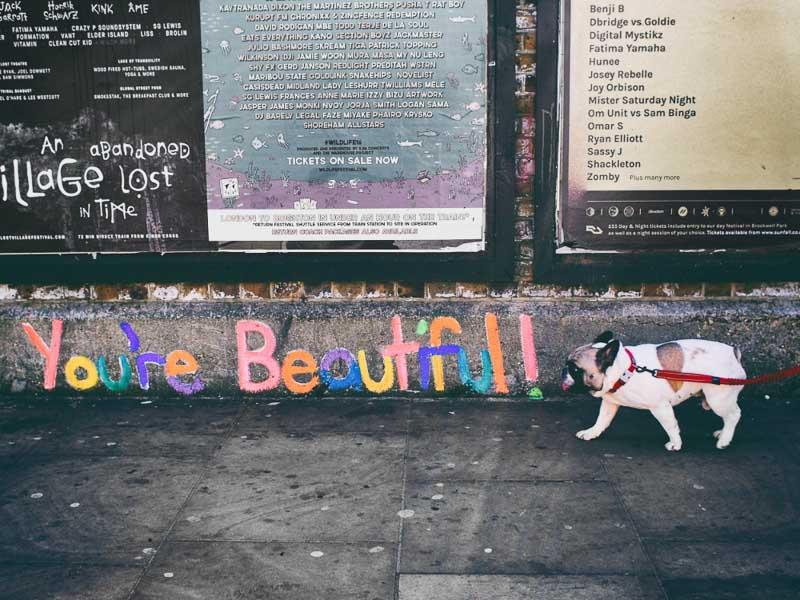 KINK ÂME
FATIMA YAMAHA CRAZY P SOUNDSYSTEM SG LEWIS
FORMATION VANT ELDER ISLAND LISS BROLIN
VITAMIN CLEAN CUT KID
LAKE OF TRANQUILITY
WOOD FIRED HOT-TUBS, SWEDISH SAUNA,
YOGA & MORE
GLOBAL STREET FOOD
SMOKESTAK, THE BREAKFAST CLUB & MORE
An abandoned
village lost
in time
KAYTRANADA DIXON THE MARTINEZ BROTHERS PUSHA T RAT BOY
KURUPT FM CHRONIXX & ZINCFENCE REDEMPTION
DAVID RODIGAN MBE TODD TERJE DE LA SOUL
EATS EVERYTHING KANO SECTION BOYZ JACKMASTER
JULIO BASHMORE SKREAM TIGA PATRICK TOPPING
WILKINSON DJ JAMIE WOON MURA MASA MY NU LENG
SHY FX GERD JANSON REDLIGHT PREDITAH WSTRN
MARIBOU STATE GOLDLINK SNAKEHIPS NOVELIST
CASISDEAD MIDLAND LADY LESHURR TWILLIAMS MELE
SG LEWIS FRANCES ANNE MARIE IZZY BIZU ARTWORK
JASPER JAMES MONKI NVOY JORJA SMITH LOGAN SAMA
DJ BARELY LEGAL FAZE MIYAKE PHAIRO KRYSKO
SHOREHAM ALLSTARS
#WILDLIFE16
TICKETS ON SALE NOW
WILDLIFEFESTIVAL.COM
LONDON TO BRIGHTON IN UNDER AN HOUR ON THE TRAIN*
*RETURN FESTIVAL SHUTTLE SERVICE FROM TRAIN STATION TO SITE IN OPERATION
RETURN COACH PACKAGES ALSO AVAILABLE
Benji B
Dbridge vs Goldie
Digital Mystikz
Fatima Yamaha
Hunee
Josey Rebelle
Joy Orbison
Mister Saturday Night
Om Unit vs Sam Binga
Omar S
Ryan Elliott
Sassy J
Shackleton
Zomby Plus many more
You're Beautiful!